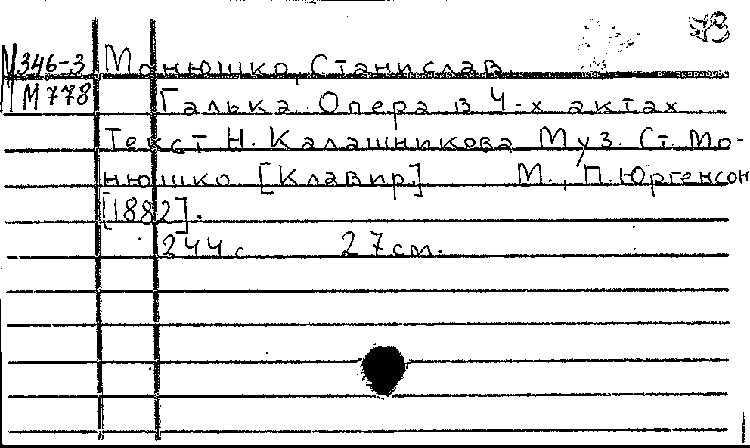 73
М346-3 Монюшко, Станислав
М778 Галька. Опера в 4-х актах
Текст Н. Калашникова Муз. Ст. Мо-
нюшко [Клавир] М., П. Юргенсон
[1882].
244 с 27 см.